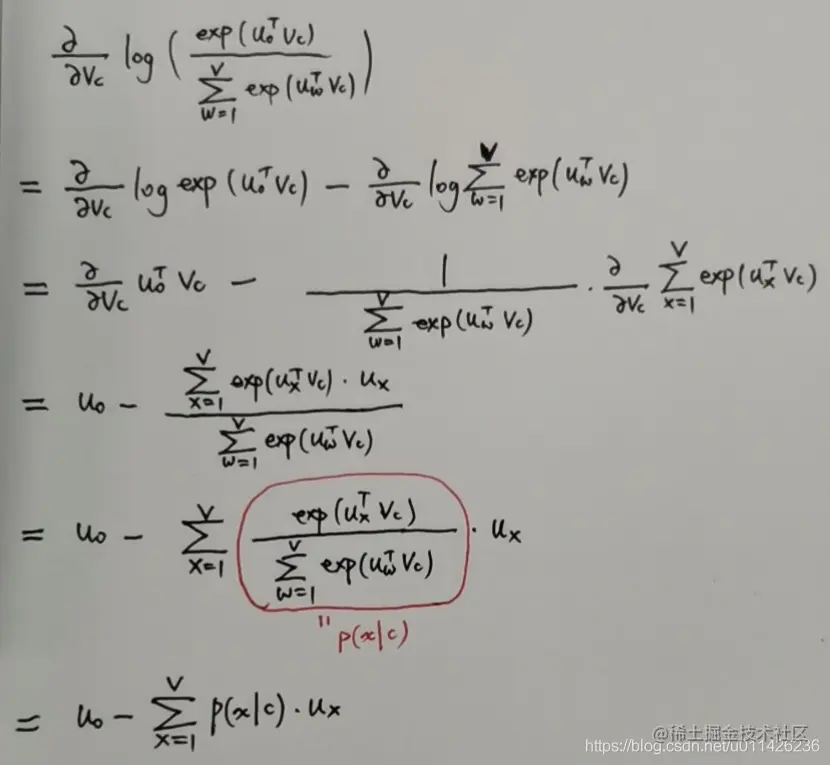 ∂/∂Vc log( exp(u_o^T Vc) / ∑_{w=1}^{V} exp(u_w^T Vc) )
= ∂/∂Vc log exp(u_o^T Vc) − ∂/∂Vc log ∑_{w=1}^{V} exp(u_w^T Vc)
= ∂/∂Vc u_o^T Vc − 1 / ∑_{w=1}^{V} exp(u_w^T Vc) · ∂/∂Vc ∑_{x=1}^{V} exp(u_x^T Vc)
= u_o − ∑_{x=1}^{V} exp(u_x^T Vc) · u_x / ∑_{w=1}^{V} exp(u_w^T Vc)
= u_o − ∑_{x=1}^{V} exp(u_x^T Vc) / ∑_{w=1}^{V} exp(u_w^T Vc) · u_x
" p(x|c)
= u_o − ∑_{x=1}^{V} p(x|c) · u_x
@稀土掘金技术社区
https://blog.csdn.net/u011426236